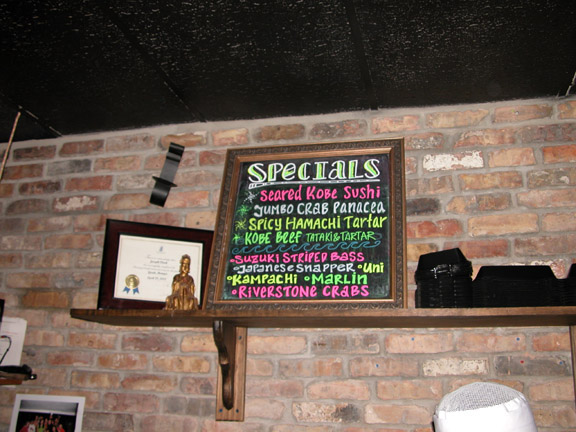 SPECIALS
SEARED KOBE SUSHI
JUMBO CRAB PANACEA
SPICY HAMACHI TARTAR
KOBE BEEF TATAKI & TARTAR
SUZUKI STRIPED BASS
JAPANESE SNAPPER • UNI
• KAMPACHI • MARLIN
• RIVERSTONE CRABS